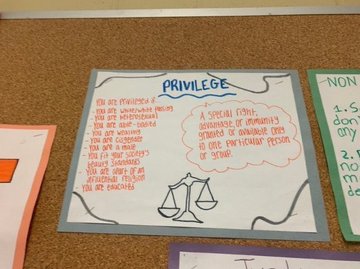 PRIVILEGE
You are privileged if
- You are white/white passing
- You are heterosexual
- You are able-bodied
- You are wealthy
- You are cisgender
- You are a male
- You fit your society's
beauty standards
- You are apart of an
influential religion
- You are educated
A special right,
advantage, or immunity
granted or available only
to one particular person
or group.
NON
1.
don't
any
2.
no